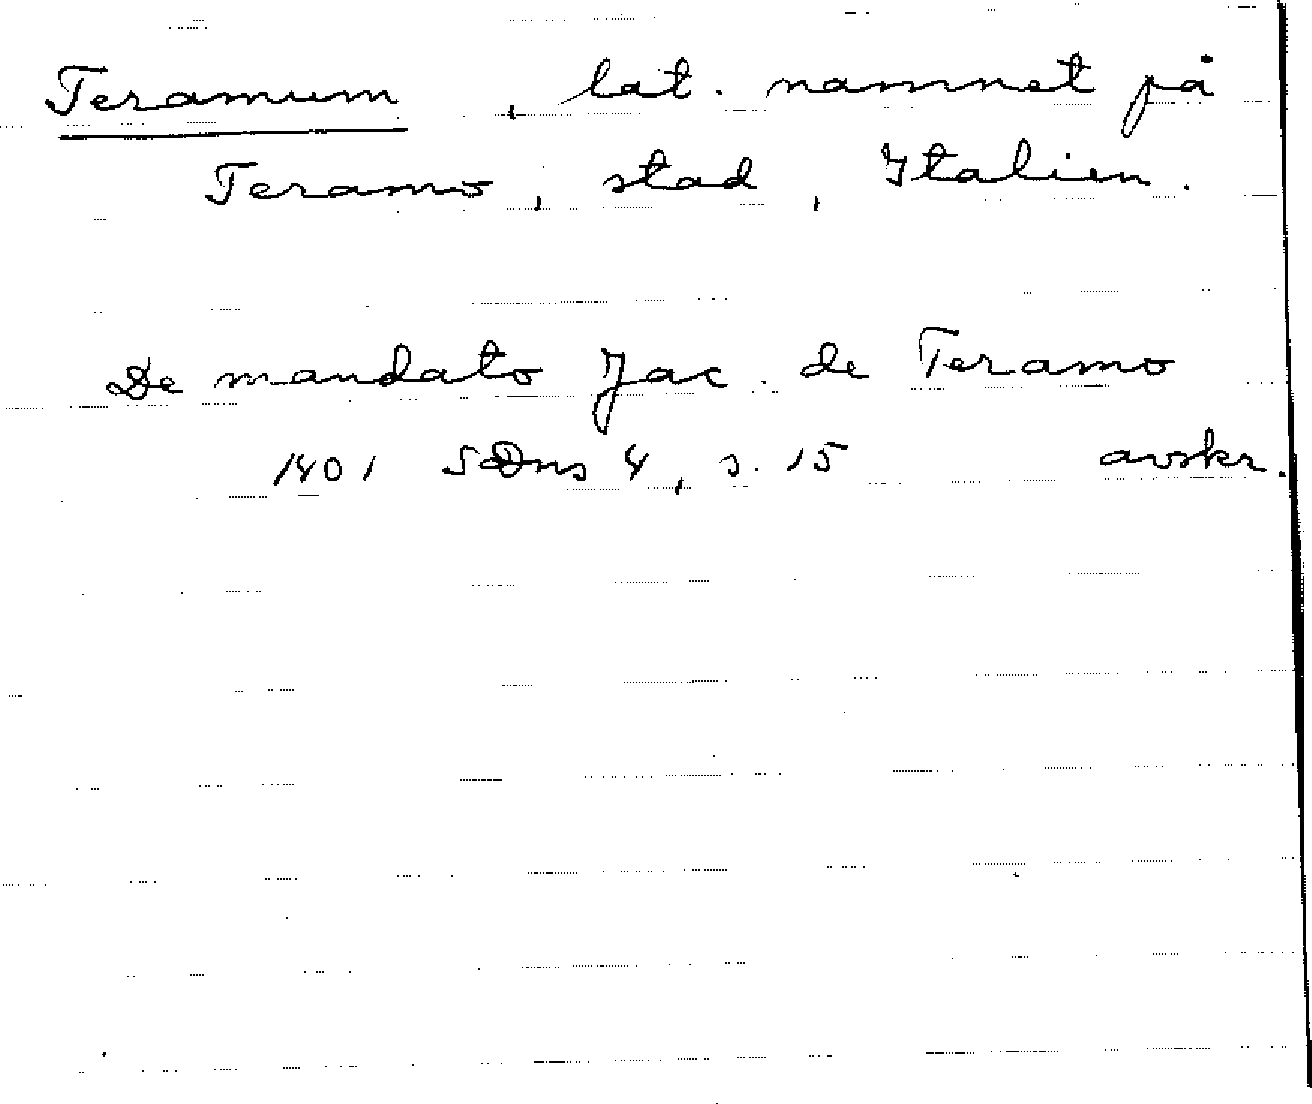 Teramum, lat. namnet på
Teramo, stad, Italien.
De mandato Jac. de Teramo
1401 SDns 4, s. 15 avskr.